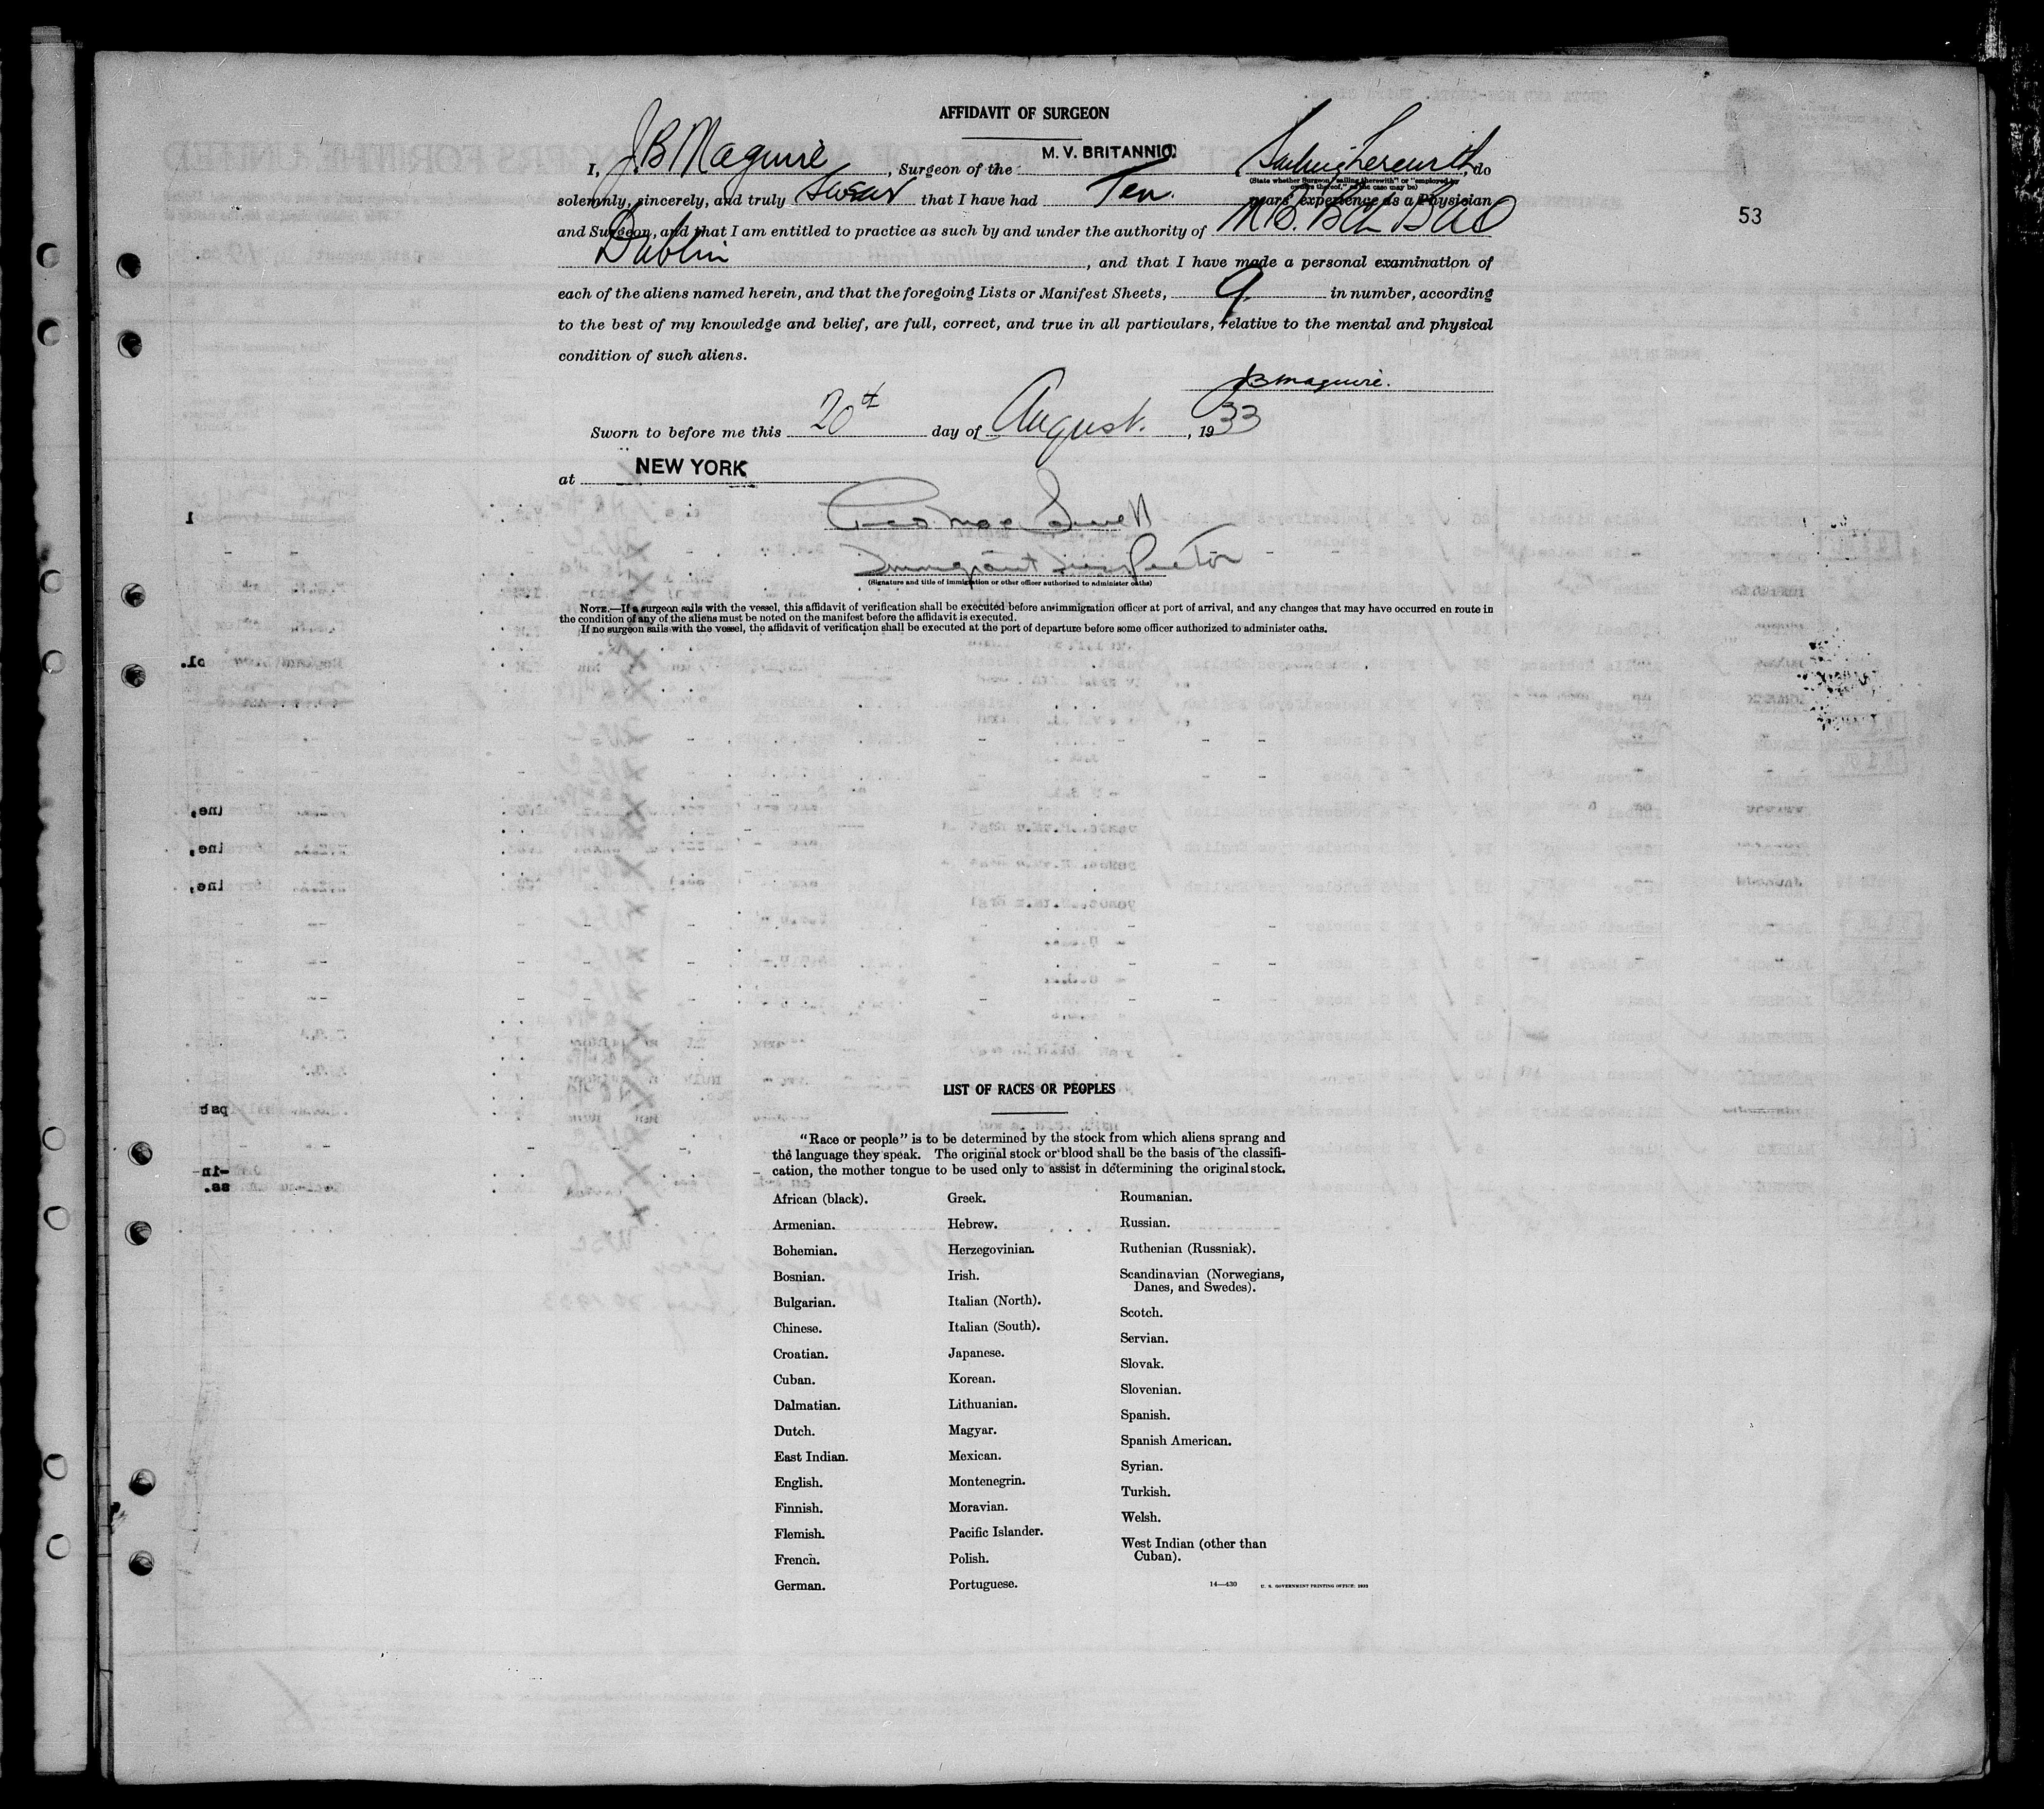 AFFIDAVIT OF SURGEON
53
I, J.B Maguire, Surgeon of the M. V. BRITANNIC. Sailing therewith, do
(State whether Surgeon "sailing therewith" or "employed by
owners thereof," as the case may be)
solemnly, sincerely, and truly swear that I have had Ten. years' experience as a Physician
and Surgeon, and that I am entitled to practice as such by and under the authority of M.B. BCh BAO
Dublin, and that I have made a personal examination of
each of the aliens named herein, and that the foregoing Lists or Manifest Sheets, 9 in number, according
to the best of my knowledge and belief, are full, correct, and true in all particulars, relative to the mental and physical
condition of such aliens.
JB Maguire.
Sworn to before me this 20th day of August., 1933
at NEW YORK
Immigrant Inspector
(Signature and title of immigration or other officer authorized to administer oaths)
NOTE.—If a surgeon sails with the vessel, this affidavit of verification shall be executed before an immigration officer at port of arrival, and any changes that may have occurred en route in
the condition of any of the aliens must be noted on the manifest before the affidavit is executed.
If no surgeon sails with the vessel, the affidavit of verification shall be executed at the port of departure before some officer authorized to administer oaths.
LIST OF RACES OR PEOPLES
"Race or people" is to be determined by the stock from which aliens sprang and
the language they speak. The original stock or blood shall be the basis of the classifi-
cation, the mother tongue to be used only to assist in determining the original stock.
African (black).
Armenian.
Bohemian.
Bosnian.
Bulgarian.
Chinese.
Croatian.
Cuban.
Dalmatian.
Dutch.
East Indian.
English.
Finnish.
Flemish.
French.
German.
Greek.
Hebrew.
Herzegovinian.
Irish.
Italian (North).
Italian (South).
Japanese.
Korean.
Lithuanian.
Magyar.
Mexican.
Montenegrin.
Moravian.
Pacific Islander.
Polish.
Portuguese.
Roumanian.
Russian.
Ruthenian (Russniak).
Scandinavian (Norwegians,
Danes, and Swedes).
Scotch.
Servian.
Slovak.
Slovenian.
Spanish.
Spanish American.
Syrian.
Turkish.
Welsh.
West Indian (other than
Cuban).
14—430 U. S. GOVERNMENT PRINTING OFFICE: 1932